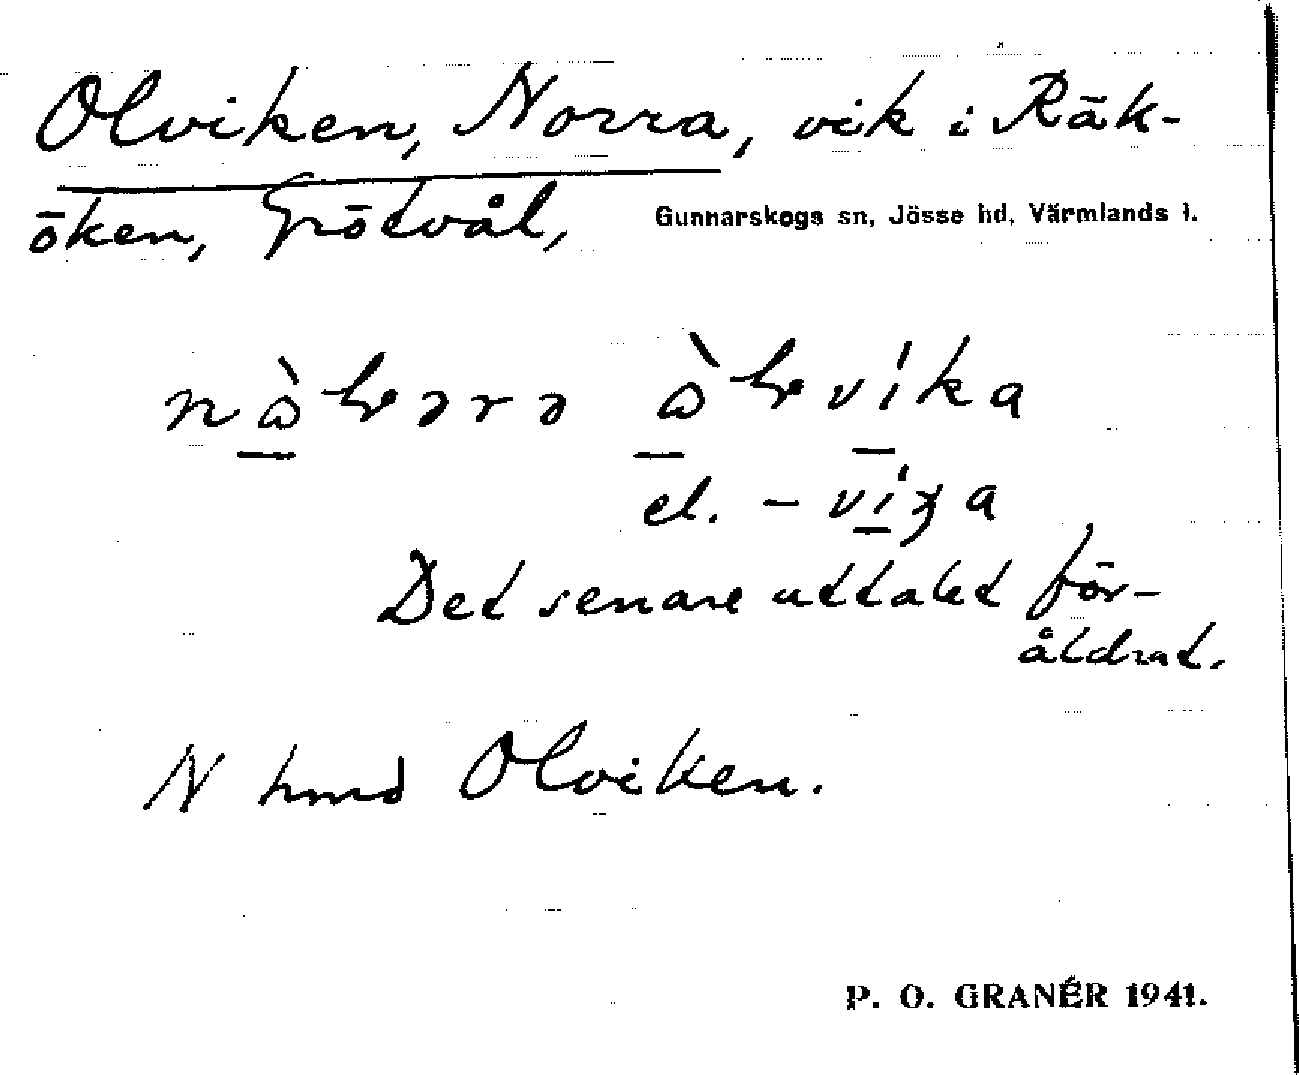 Olviken, Norra, vik i Räk-
öken, Grötvål, Gunnarskogs sn, Jösse hd, Värmlands l.
el. -
Det senare uttalet för-
åldrat.
N hmd Olviken.
P. O. GRANÉR 1941.